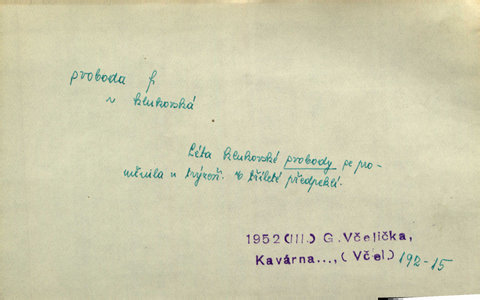 svoboda f.
v klukovská
Léta klukovské svobody se pro-
měnila v trýzeň. tříleté předpeklí.
1952(III.) G. Včelička,
Kavárna..., (Včel) 192-15